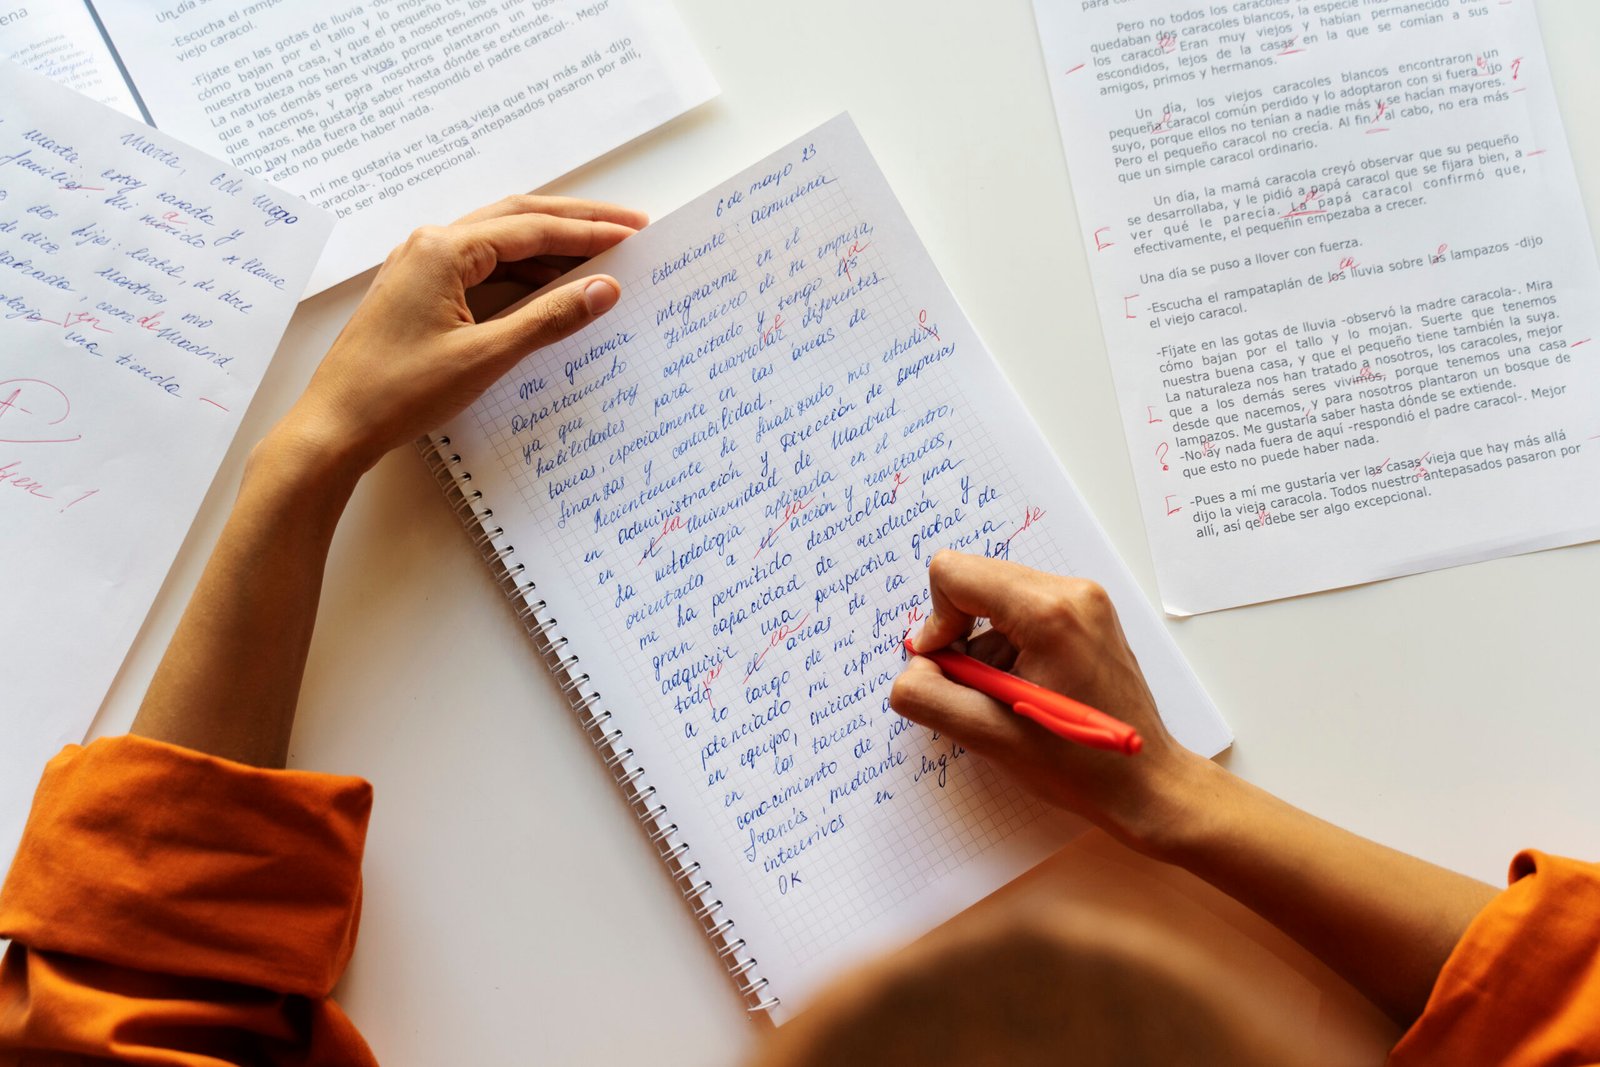 ena
en Barcelona
informático y
Un día se
-Escucha el rampata
viejo caracol.
-Fíjate en las gotas de lluvia -ob
cómo bajan por el tallo y lo moj
nuestra buena casa, y que el pequeño
La naturaleza nos han tratado a nosotros, los
que a los demás seres vivos, porque tenemos un
que nacemos, y para nosotros plantaron un bosq
lampazos. Me gustaría saber hasta dónde se extiende.
-No hay nada fuera de aquí -respondió el padre caracol-. Mejor
esto no puede haber nada.
a mí me gustaría ver la casa vieja que hay más allá -dijo
caracola-. Todos nuestros antepasados pasaron por allí,
be ser algo excepcional.
Marta, 6 de Mayo
marta. estoy casada y
familia. Mi marido se llama
a
dos hijos: Isabel, de doce
de diez
nosotros vivo
, cerca de Madrid.
en
una tienda
A-
6 de mayo 23
Estudiante: Almudena
Me gustaría integrarme en el
Departamento Financiero de su empresa,
ya que estoy capacitado y tengo los
a
habilidades para desarrollar diferentes
tareas, especialmente en las áreas de
finanzas y contabilidad.
Recientemente he finalizado mis estudios
o
en administración y Dirección de empresas
en el Universidad de Madrid.
la
La metodología aplicada en el centro,
orientado a el acción y resultados,
la
me ha permitido desarrollar una
r
gran capacidad de resolución y
adquirir una perspectiva global de
todo el áreas de la empresa.
as la
a lo largo de mi formac
he
potenciado mi espíritu
u
en equipo, iniciativa
en las tareas, a
conocimiento de id
francés, mediante
intensivos en Ingl
OK
Pero no todos los caracoles
quedaban dos caracoles blancos, la especie más
los caracol. Eran muy viejos y habían permanecido
es
escondidos, lejos de la casas en la que se comían a sus
amigos, primos y hermanos.
Un día, los viejos caracoles blancos encontraron un
pequeña caracol común perdido y lo adoptaron con si fuera ijo
suyo, porque ellos no tenían a nadie más y se hacían mayores.
Pero el pequeño caracol no crecía. Al fin y al cabo, no era más
que un simple caracol ordinario.
Un día, la mamá caracola creyó observar que su pequeño
se desarrollaba, y le pidió a papá caracol que se fijara bien, a
ver qué le parecía. La papá caracol confirmó que,
efectivamente, el pequeñín empezaba a crecer.
Una día se puso a llover con fuerza.
-Escucha el rampataplán de los lluvia sobre las lampazos -dijo
la
el viejo caracol.
-Fíjate en las gotas de lluvia -observó la madre caracola-. Mira
cómo bajan por el tallo y lo mojan. Suerte que tenemos
nuestra buena casa, y que el pequeño tiene también la suya.
La naturaleza nos han tratado a nosotros, los caracoles, mejor
que a los demás seres vivimos, porque tenemos una casa
desde que nacemos, y para nosotros plantaron un bosque de
lampazos. Me gustaría saber hasta dónde se extiende.
-No ay nada fuera de aquí -respondió el padre caracol-. Mejor
que esto no puede haber nada.
-Pues a mí me gustaría ver las casas vieja que hay más allá
dijo la vieja caracola. Todos nuestro antepasados pasaron por
allí, así qe debe ser algo excepcional.